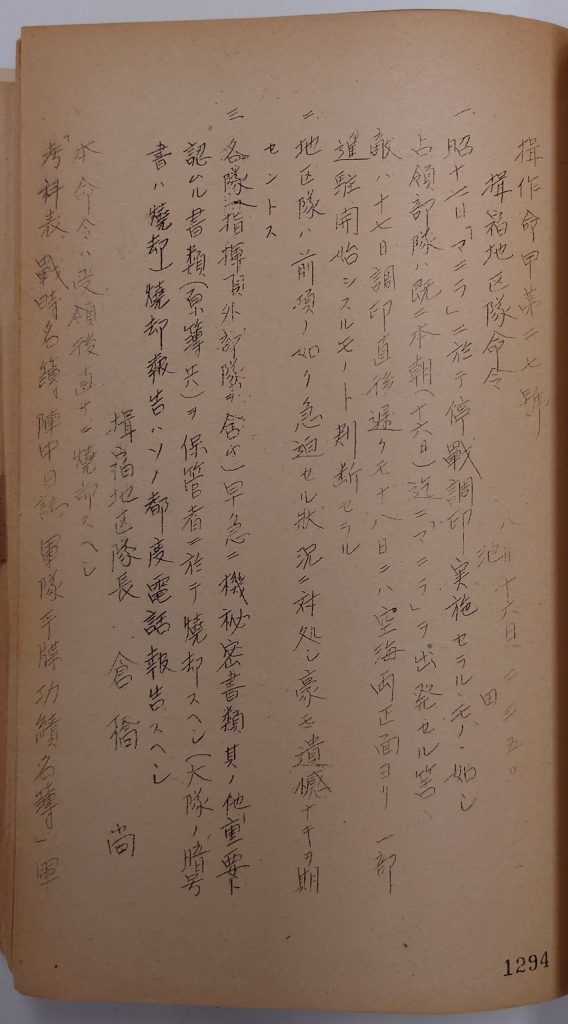 揖作命甲第二七號
八月十六日 二三五〇
池田
揖宿地区隊命令
一、昭十七日「マニラ」ニ於テ停戰調印ヲ実施セラルヽモノヽ如シ
占領部隊ハ既ニ本朝(十六日)迄ニ「マニラ」ヲ出発セル筈
敵ハ十七日調印直後遅クモ十八日ニハ空海両正面ヨリ一部
進駐開始シスルモノト判断セラル
二、地区隊ハ前項ノ如ク急迫セル狀況ニ対処シ豪モ遺憾ナキヲ期
セントス
三、各隊(指揮下外部隊ヲ含ム)早急ニ機秘密書類其ノ他重要ト
認ムル書類(原簿共)ヲ保管者ニ於テ燒却スヘシ(大隊ノ暗号
書ハ燒却)燒却報告ハソノ都度電話報告スヘシ
揖宿地区隊長 倉橋 尚
本命令ハ受領後直ケニ燒却スヘシ
「考科表、戰時名簿、陣中日誌、軍隊手牒、功績名簿」軍
1294